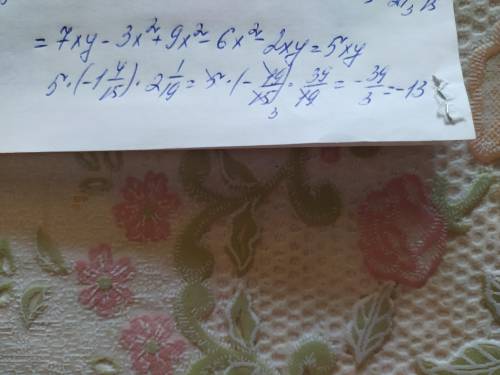 = 7xy - 3x² + 9x² - 6x² - 2xy = 5xy
5 · (-1 4/15) · 2 1/19 = 5 · (- 19/15) · 39/19 = - 39/3 = -13
3